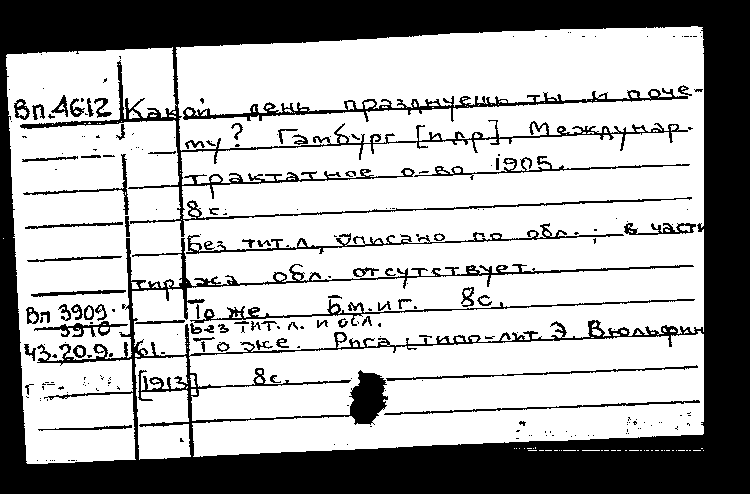 Вп.4612 Какой день празднуешь ты и поче-
му? Гамбург [и др], Междунар.
трактатное о-во, 1905.
8с.
Без тит.л., Описано по обл.; в части
тиража обл. отсутствует.
Вп 3909- То же. Б.м.иг. 8с.
3910 Без тит.л. и обл.
Ч3.20.9.161. То же. Рига, типо-лит. Э. Вюльфин
[1913] 8с.